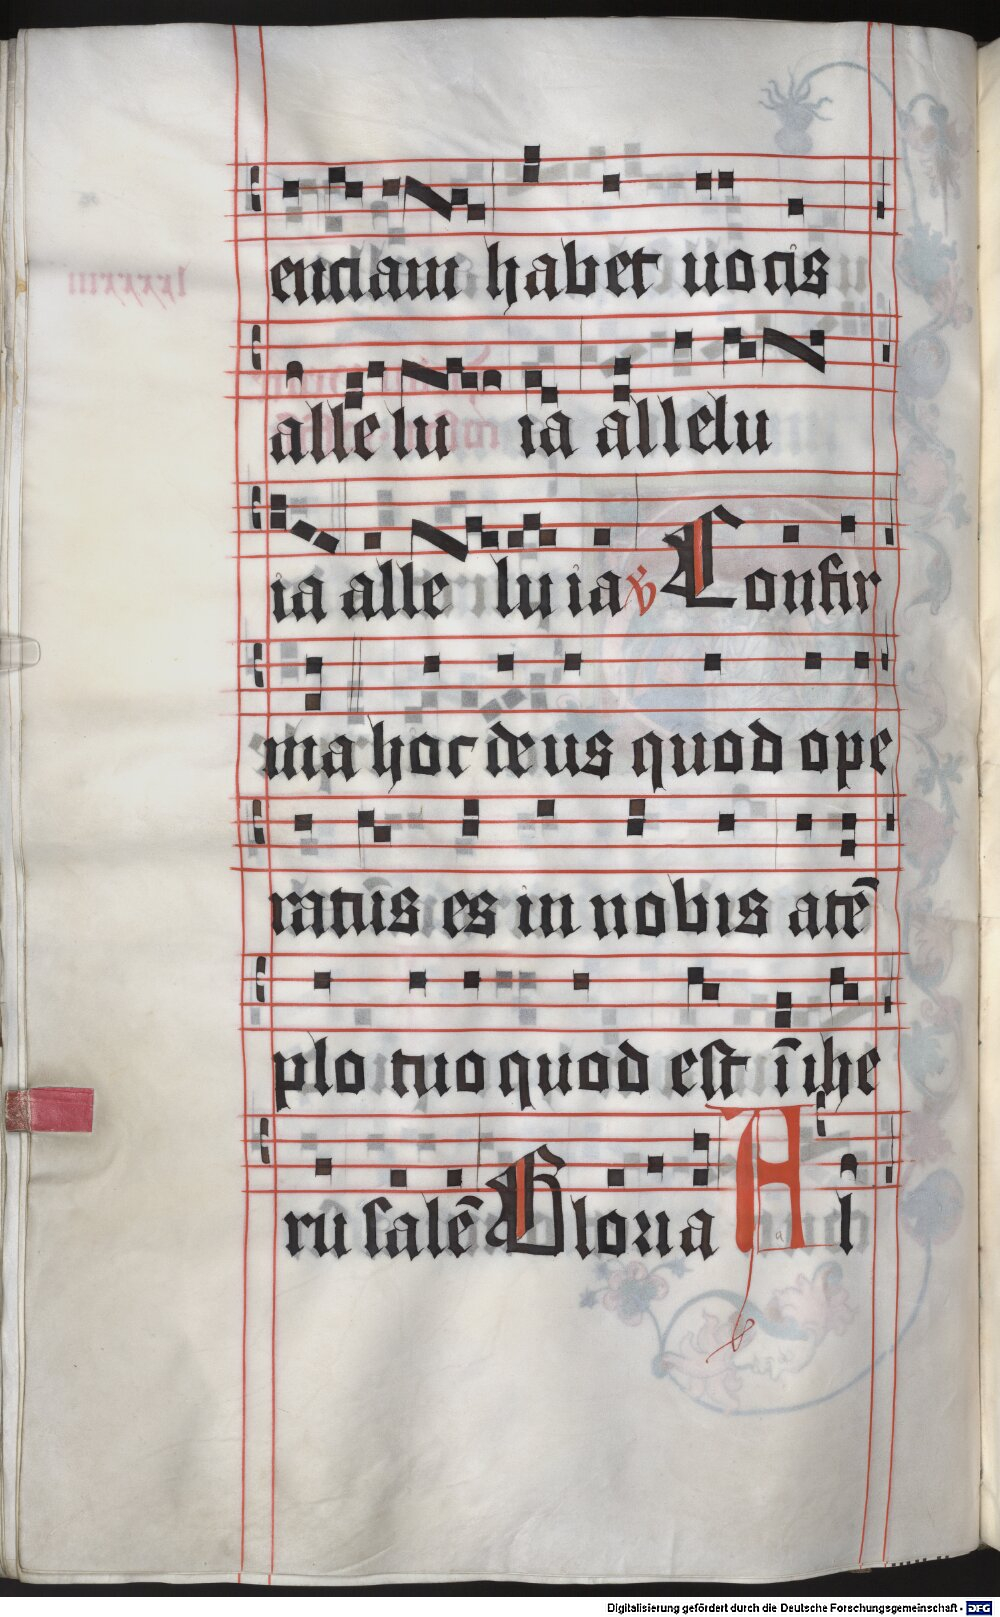 enciam habet uocis
allelu ia allelu
ia alleluia ℣ Confir
ma hoc deus quod ope
ratus es in nobis a tē
plo tuo quod est ī ihe
rusalē Gloria Al
Digitalisierung gefördert durch die Deutsche Forschungsgemeinschaft - DFG